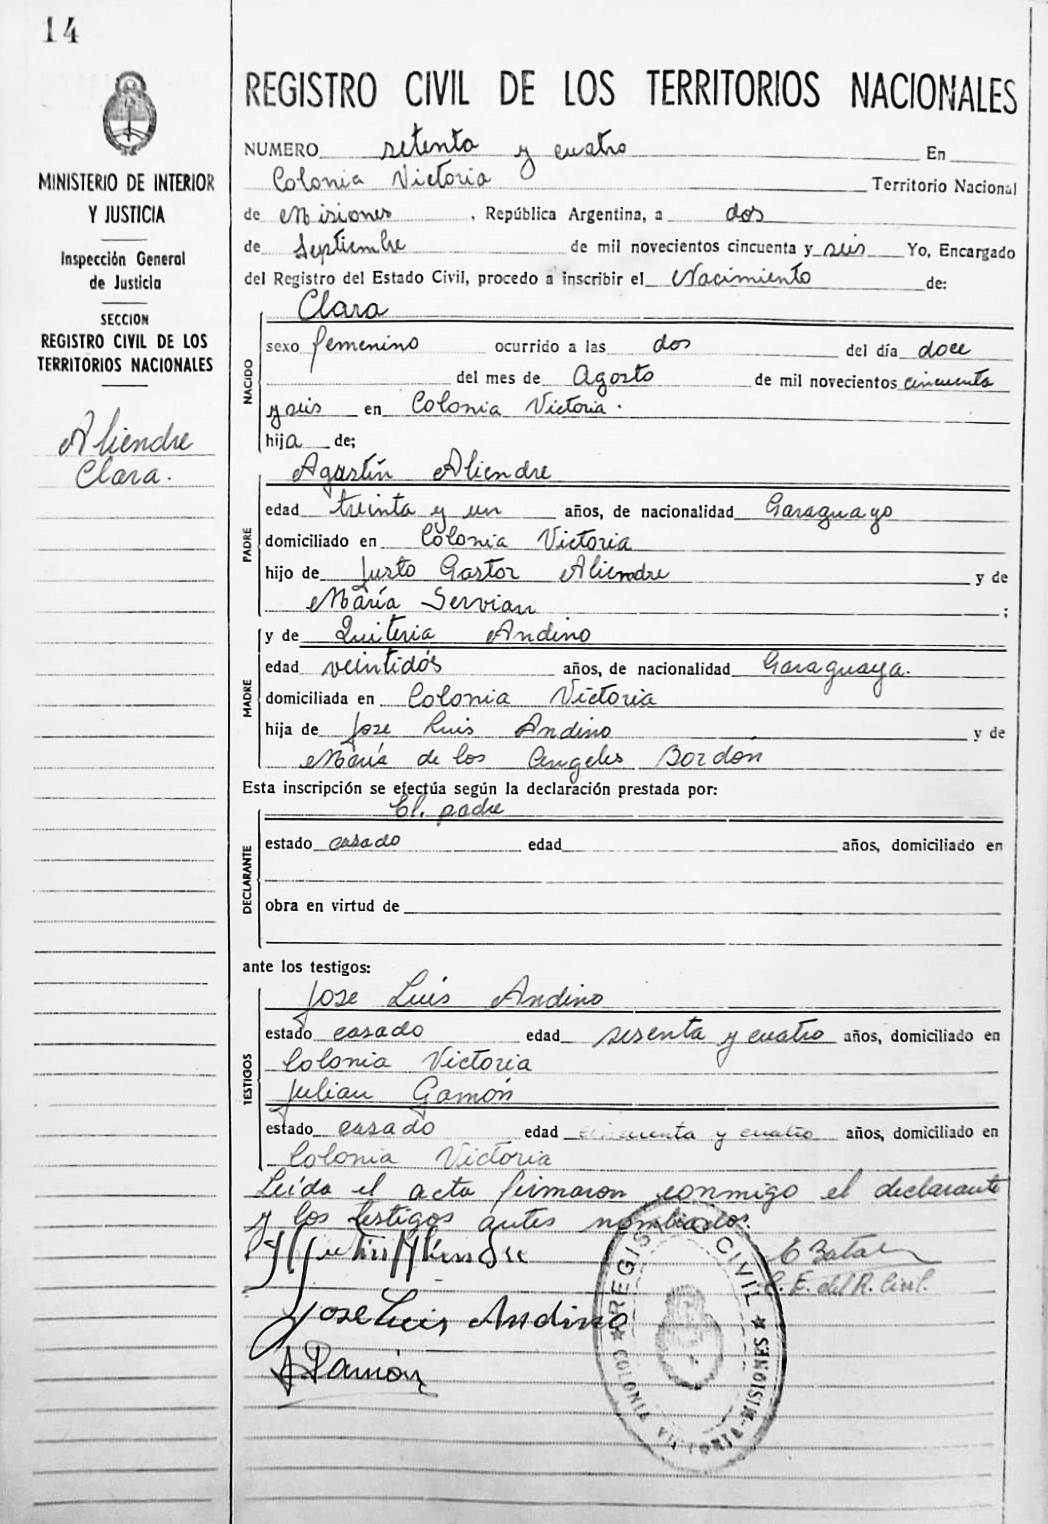 14
MINISTERIO DE INTERIOR
Y JUSTICIA
Inspección General
de Justicia
SECCION
REGISTRO CIVIL DE LOS
TERRITORIOS NACIONALES
Aliendre
Clara.
REGISTRO CIVIL DE LOS TERRITORIOS NACIONALES
NUMERO setenta y cuatro En
Colonia Victoria Territorio Nacional
de Misiones , República Argentina, a dos
de Septiembre de mil novecientos cincuenta y seis Yo, Encargado
del Registro del Estado Civil, procedo a inscribir el Nacimiento de:
NACIDO
Clara
sexo femenino ocurrido a las dos del día doce
del mes de Agosto de mil novecientos cincuenta
y seis en Colonia Victoria.
hija de;
PADRE
Agustín Aliendre
edad treinta y un años, de nacionalidad Paraguayo
domiciliado en Colonia Victoria
hijo de Justo Gastor Aliendre y de
María Servian ;
MADRE
y de Quiteria Andino
edad veintidós años, de nacionalidad Paraguaya.
domiciliada en Colonia Victoria
hija de Jose Luis Andino y de
María de los Angeles Bordón
Esta inscripción se efectúa según la declaración prestada por:
DECLARANTE
El. padre
estado casado edad años, domiciliado en
obra en virtud de
ante los testigos:
TESTIGOS
Jose Luis Andino
estado casado edad sesenta y cuatro años, domiciliado en
Colonia Victoria
Julian Gamón
estado casado edad cincuenta y cuatro años, domiciliado en
Colonia Victoria
Leída el acta firmaron conmigo el declarante
y los testigos antes nombrados.
Agustin Aliendre
E. del R. Civil.
Jose Luis Andino
REGISTRO CIVIL
COLONIA VICTORIA-MISIONES